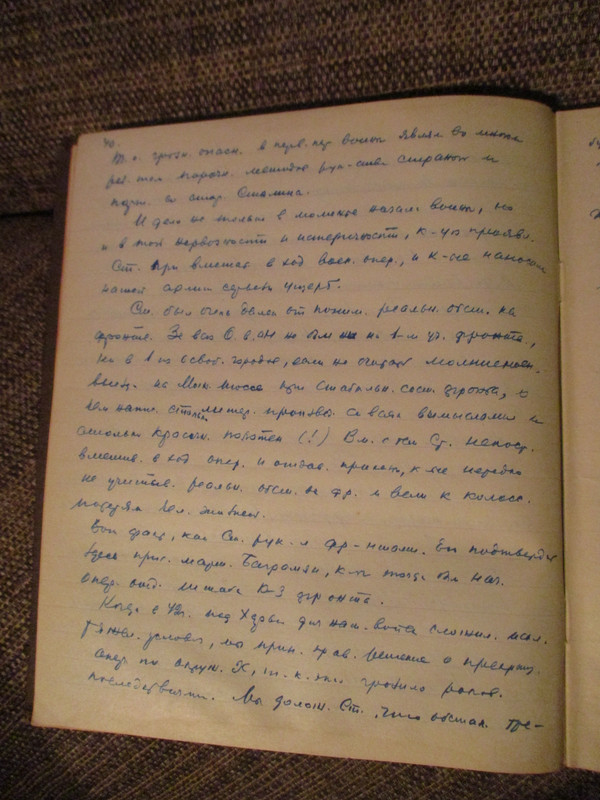 40.
Т. о. грозн. опасн. в перв. пер. войны явля во многом
рез-том порочн. методов рук-ства страной и
парт. со стор. Сталина.
И дело не только в моменте начала войны, но
и в той нервозности и истеричности, к-ую проявл.
Ст. при вмешат. в ход воен. опер., и к-ые наносили
нашей армии серьезн ущерб.
Ст. был очень далек от поним. реальн. обст. на
фронте. За всю О. в. он не был ни на 1-м уч. фронта,
ни в 1 из освоб. городов, если не считать молниеносн.
выезд. на Мож шоссе при стабильн. сост. фронта, о
кем напис. столько литер. произвед. со всяк вымыслами и
столько красочн. полотен (!) Вм. с тем Ст. непоср.
вмешив. в ход опер. и отдав. приказы, к-ые нередко
не учитыв. реальн. обст. на фр. и вели к колосс.
потерям чел. жизней.
Вот факт, как Ст. рук-л фр-нтами. Его подтвердит
здесь прис. марш. Баграмян, к-ый тогда был нач.
опер. отд. штаба Ю-З фронта.
Когда в 42г. под Харьк для наш. войск сложил. искл.
тяжел. условия, мы прин. прав. решение о прекращ.
опер. по окруж. Х, т. к. это грозило роков.
последствиями. Мы долож. Ст., что обстан. тре-